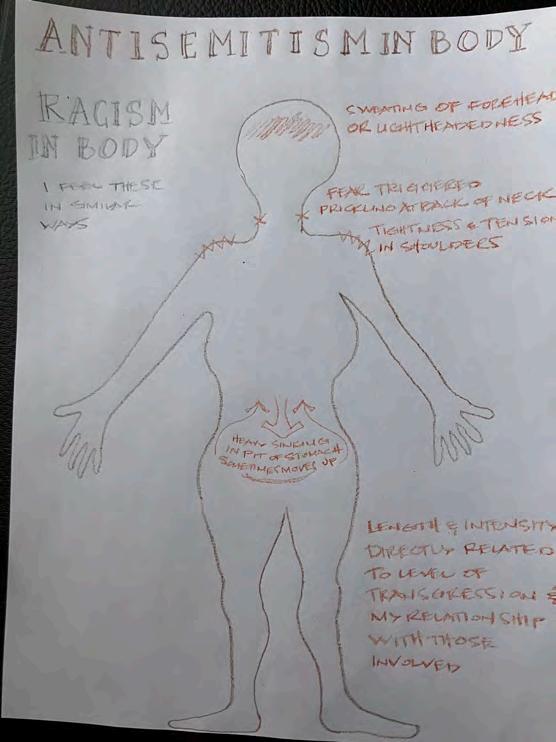 ANTISEMITISM IN BODY
RACISM
IN BODY
I FEEL THESE
IN SIMILAR
WAYS
SWEATING OF FOREHEAD
OR LIGHTHEADEDNESS
FEAR TRIGGERED
PRICKLING AT BACK OF NECK
TIGHTNESS & TENSION
IN SHOULDERS
HEAVY SINKING
IN PIT OF STOMACH
SOMETIMES MOVES UP
LENGTH & INTENSITY
DIRECTLY RELATED
TO LEVEL OF
TRANSGRESSION &
MY RELATIONSHIP
WITH THOSE
INVOLVED